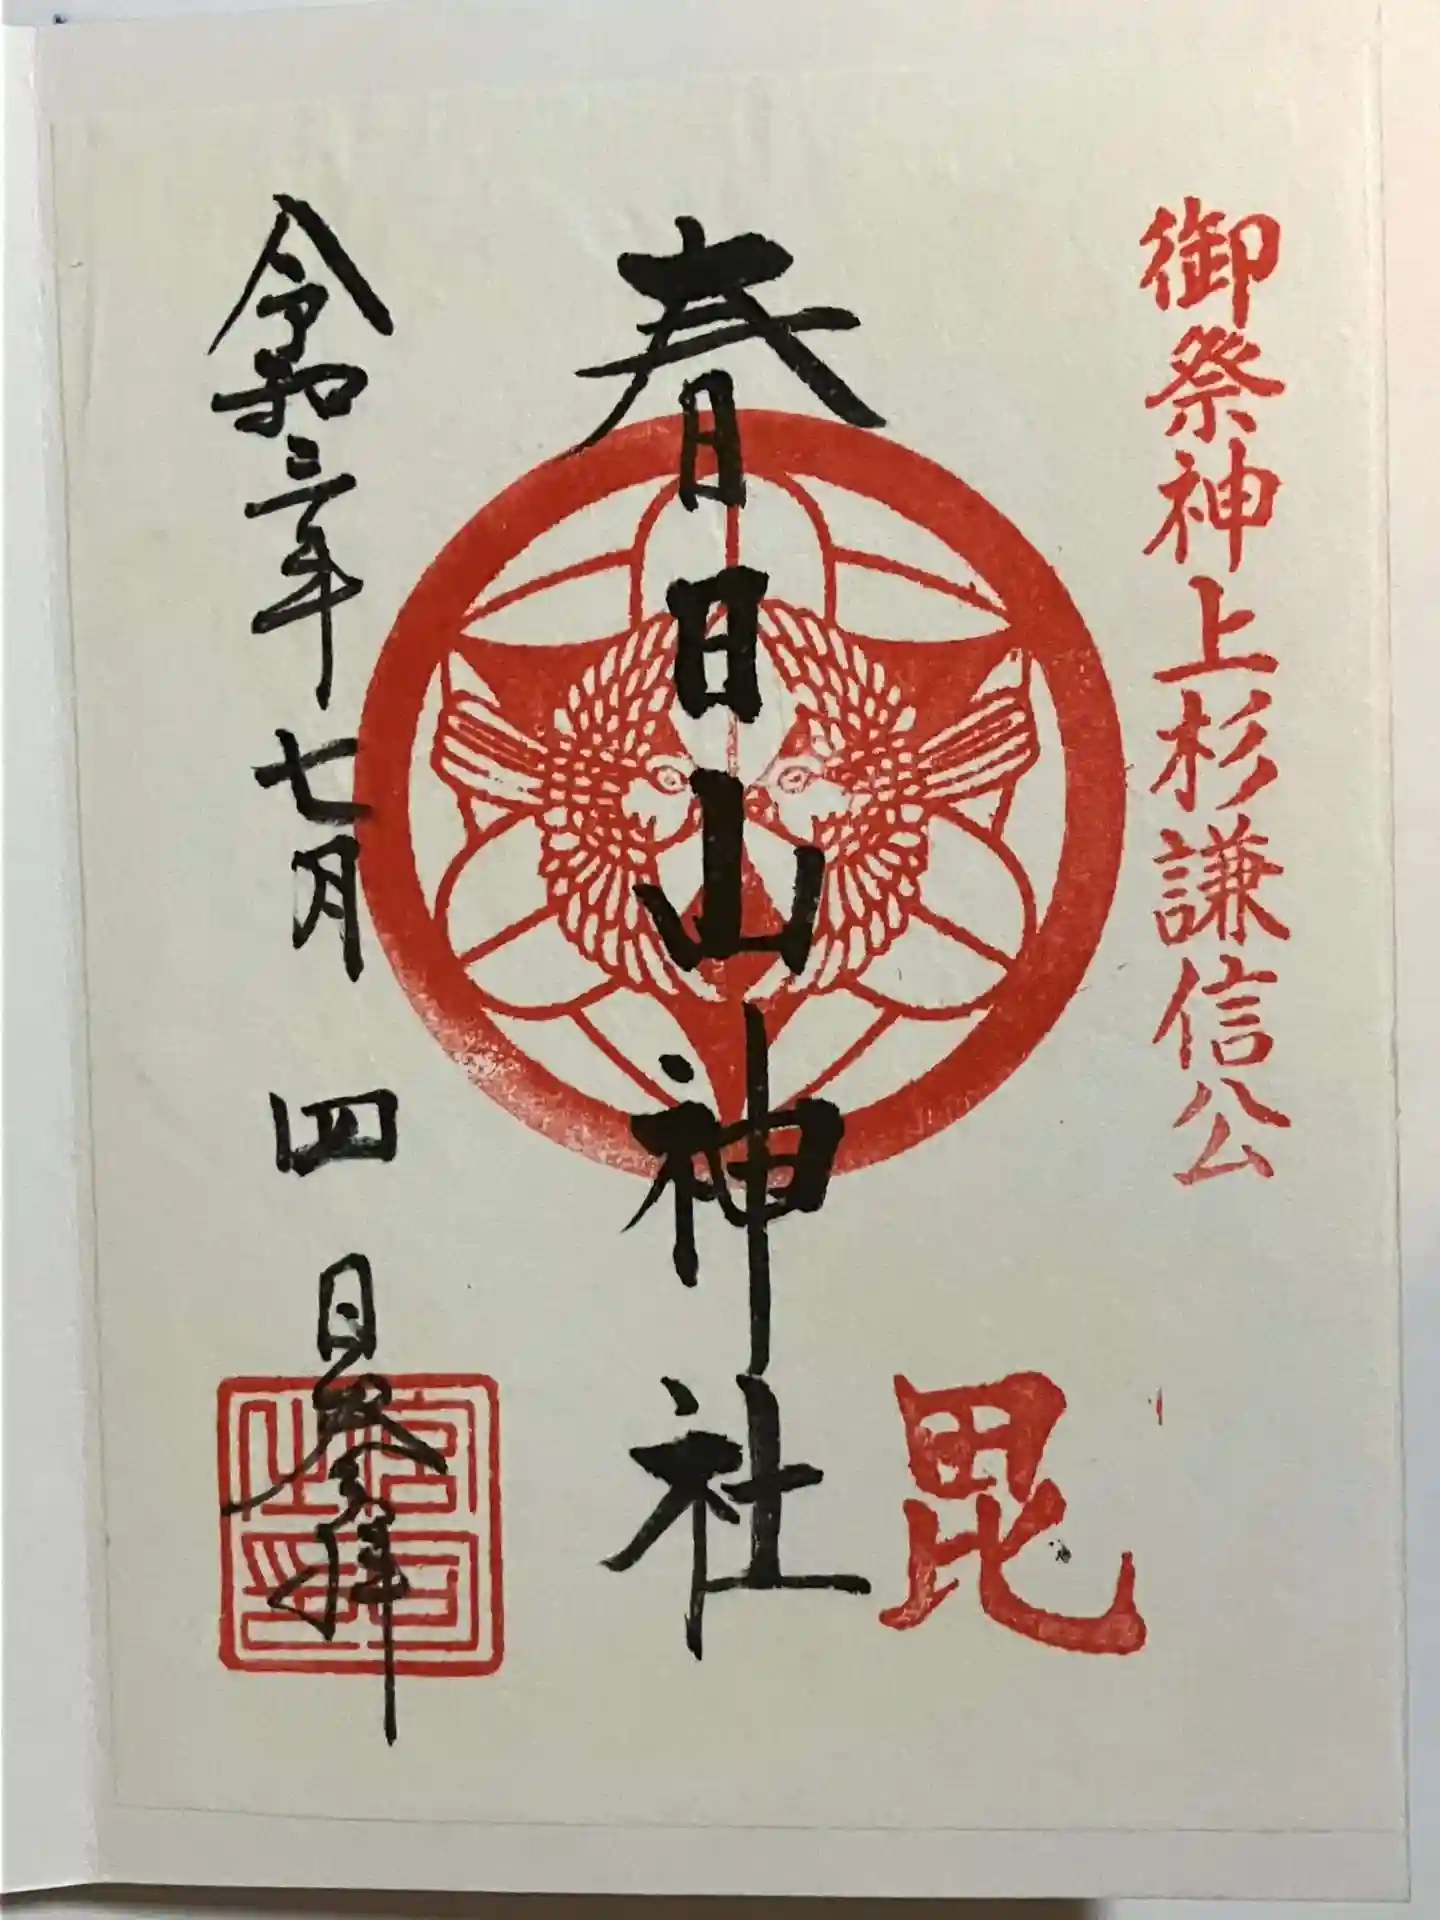 御祭神上杉謙信公
毘
春日山神社
令和三年七月四日参拝